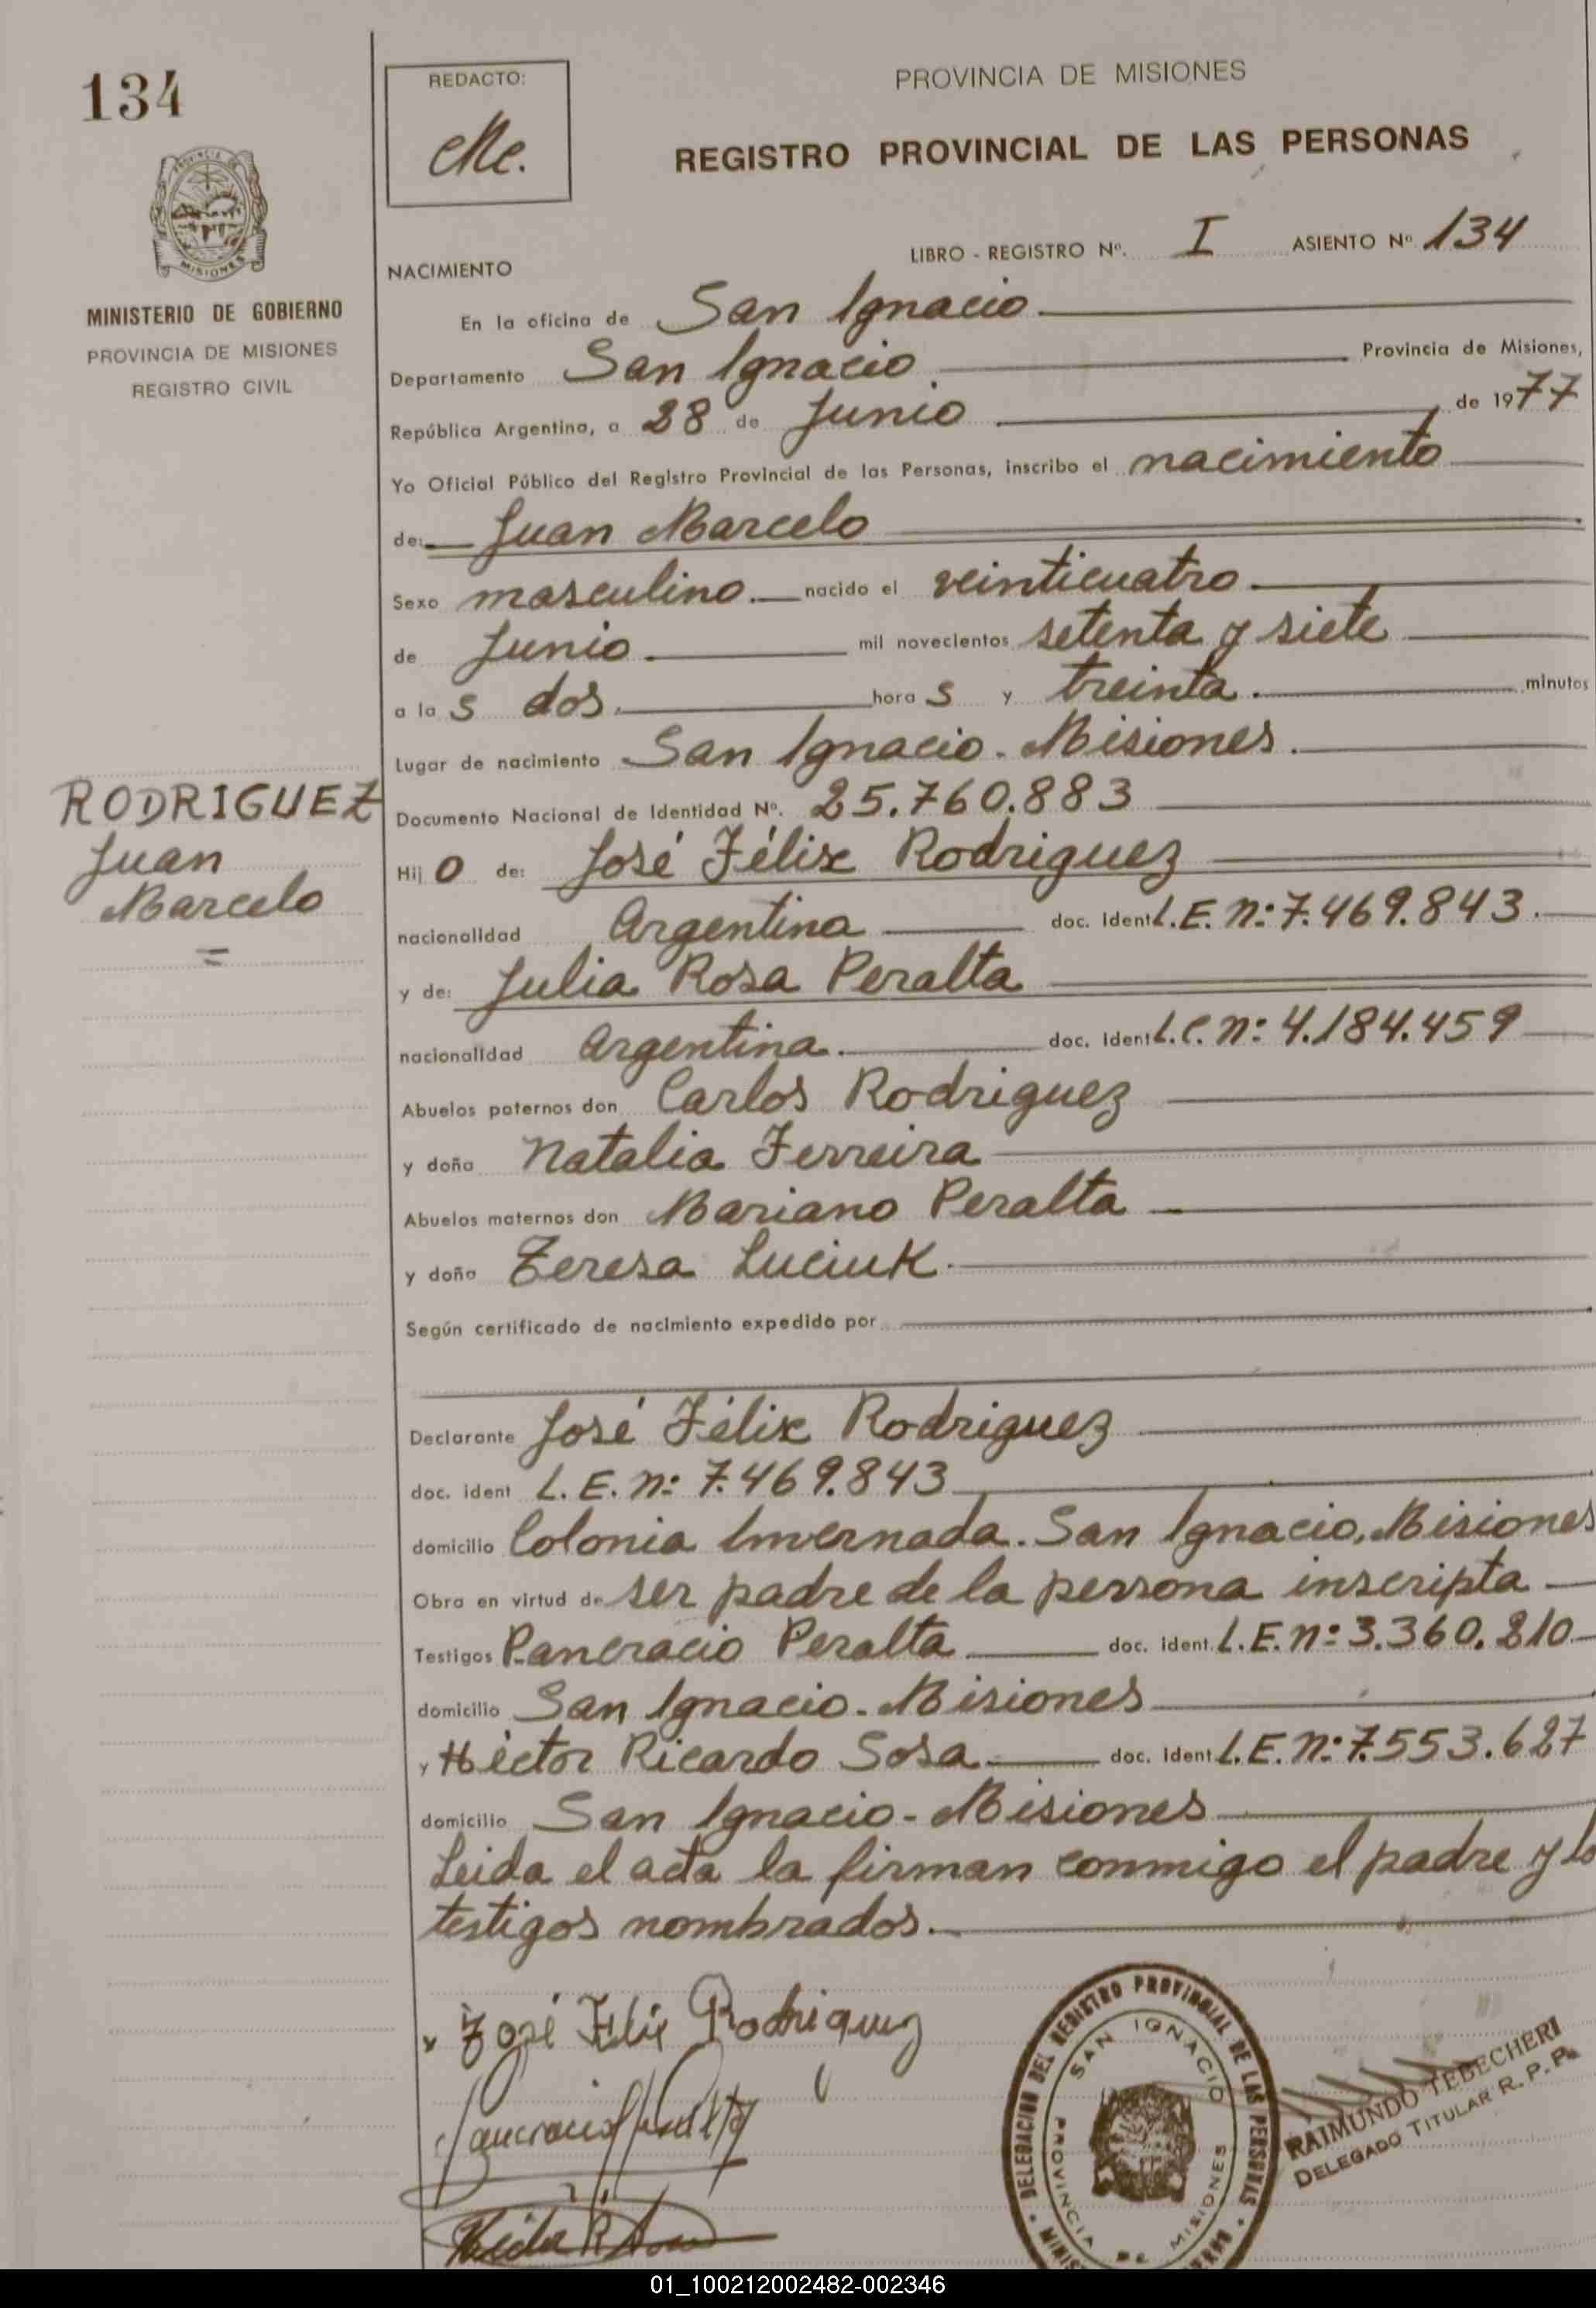 134
REDACTO:
Me.
PROVINCIA DE MISIONES
REGISTRO PROVINCIAL DE LAS PERSONAS
PROVINCIA DE
MISIONES
MINISTERIO DE GOBIERNO
PROVINCIA DE MISIONES
REGISTRO CIVIL
LIBRO - REGISTRO Nº. I ASIENTO Nº 134
NACIMIENTO
En la oficina de San Ignacio
Departamento San Ignacio. Provincia de Misiones,
República Argentina, a 28 de Junio de 1977
Yo Oficial Público del Registro Provincial de las Personas, inscribo el nacimiento
de: Juan Marcelo
Sexo masculino. nacido el veinticuatro
de Junio. mil novecientos setenta y siete
a las dos. horas y treinta. minutos
Lugar de nacimiento San Ignacio. Misiones.
RODRIGUEZ
Juan
Marcelo
=
Documento Nacional de Identidad Nº. 25.760.883
Hijo de: José Félix Rodriguez
nacionalidad Argentina doc. ident L.E. Nº: 7.469.843.
y de: Julia Rosa Peralta
nacionalidad Argentina. doc. ident L.C. Nº: 4.184.459
Abuelos paternos don Carlos Rodriguez
y doña Natalia Ferreira
Abuelos maternos don Mariano Peralta
y doña Teresa Luciuk.
Según certificado de nacimiento expedido por
Declarante José Félix Rodriguez
doc. ident L.E. Nº: 7.469.843
domicilio Colonia Invernada. San Ignacio, Misiones
Obra en virtud de ser padre de la persona inscripta
Testigos Pancracio Peralta doc. ident. L.E. Nº: 3.360.210
domicilio San Ignacio. Misiones
y Héctor Ricardo Sosa doc. ident L.E. Nº: 7.553.627
domicilio San Ignacio - Misiones
Leida el acta la firman conmigo el padre y lo
testigos nombrados.
José Felix Rodriguez
Pancracio Peralta
DELEGACION DEL REGISTRO PROVINCIAL DE LAS PERSONAS
SAN IGNACIO
PROVINCIA DE MISIONES
RAIMUNDO TEBECHERI
DELEGADO TITULAR R. P. P.
01_100212002482-002346